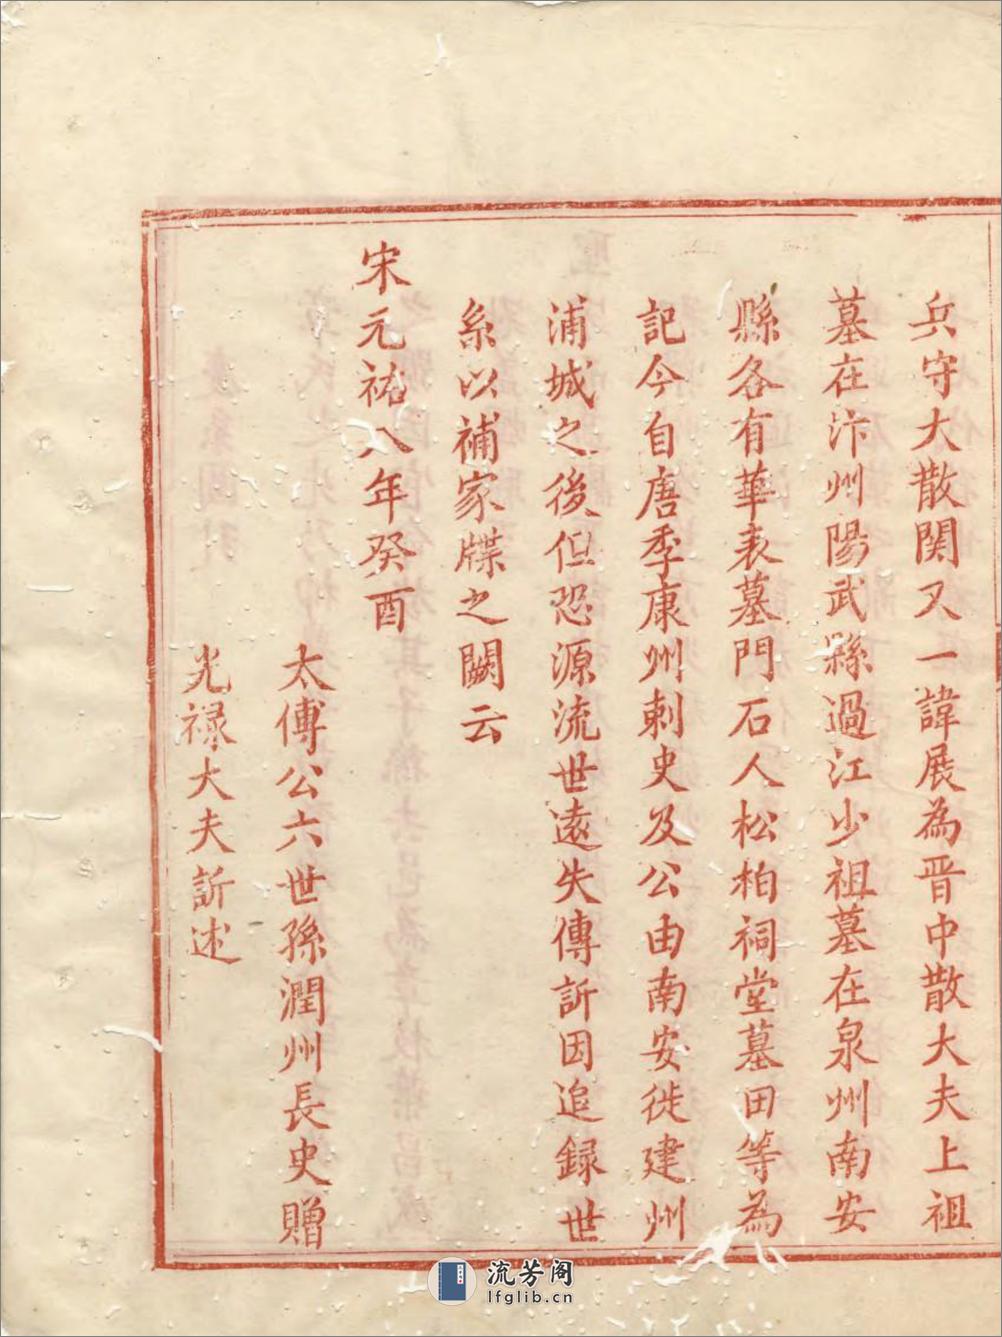 兵守大散関又一諱展為晋中散大夫上祖
墓在汴州陽武縣過江少祖墓在泉州南安
縣各有華表墓門石人松柏祠堂墓田等為
記今自唐季康州刺史及公由南安徙建州
浦城之後但恐源流世遠失傳訢因追録世
系以補家牒之闕云
宋元祐八年癸酉
太傅公六世孫潤州長史贈
光禄大夫訢述
流芳阁
lfglib.cn